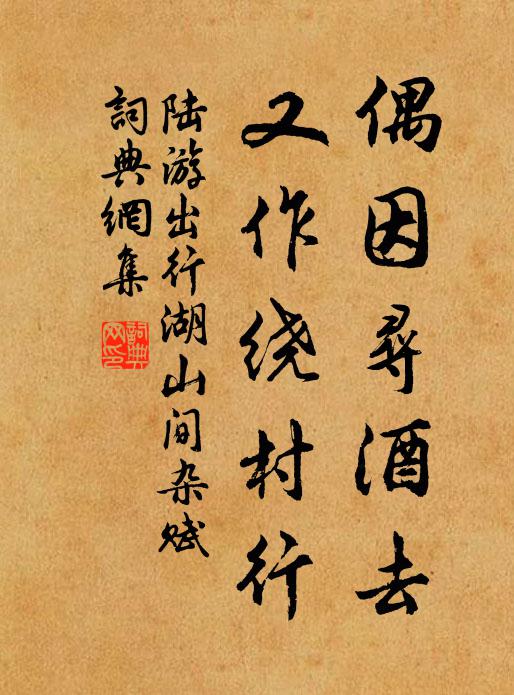 偶因寻酒去
又作绕村行
陆游出行湖山间杂赋
詞典網集
詞典网印